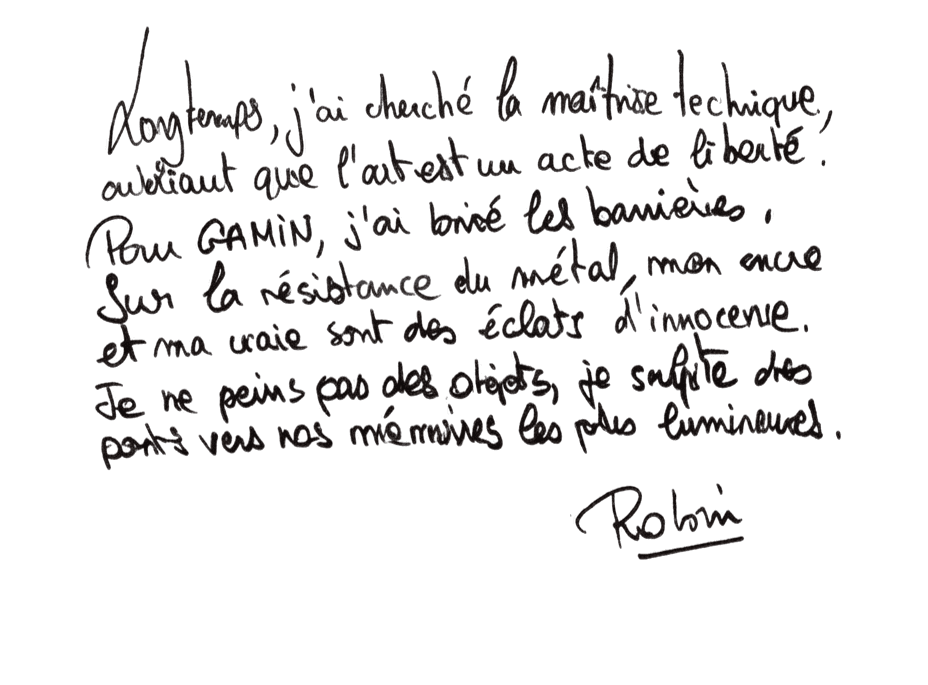 Longtemps, j'ai cherché la maîtrise technique,
oubliant que l'art est un acte de liberté.
Pour GAMIN, j'ai brisé les barrières.
Sur la résistance du métal, mon encre
et ma craie sont des éclats d'innocence.
Je ne peins pas des objets, je sculpte des
ponts vers nos mémoires les plus lumineuses.
Robin